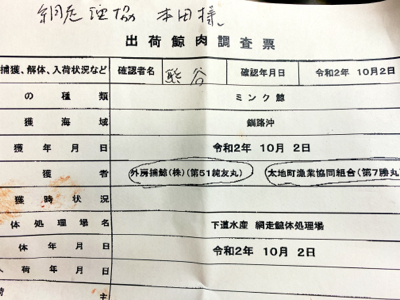 網走漁協 本田様
出荷鯨肉調査票
捕獲、解体、入荷状況など 確認者名 熊谷 確認年月日 令和2年 10月2日
の種類 ミンク鯨
獲海域 釧路沖
獲年月日 令和2年 10月 2日
獲者 外房捕鯨(株)(第51純友丸) 太地町漁業協同組合(第7勝丸
獲時状況
体処理場名 下道水産 網走鯨体処理場
体年月日 令和2年 10月 2日
荷年月日
主